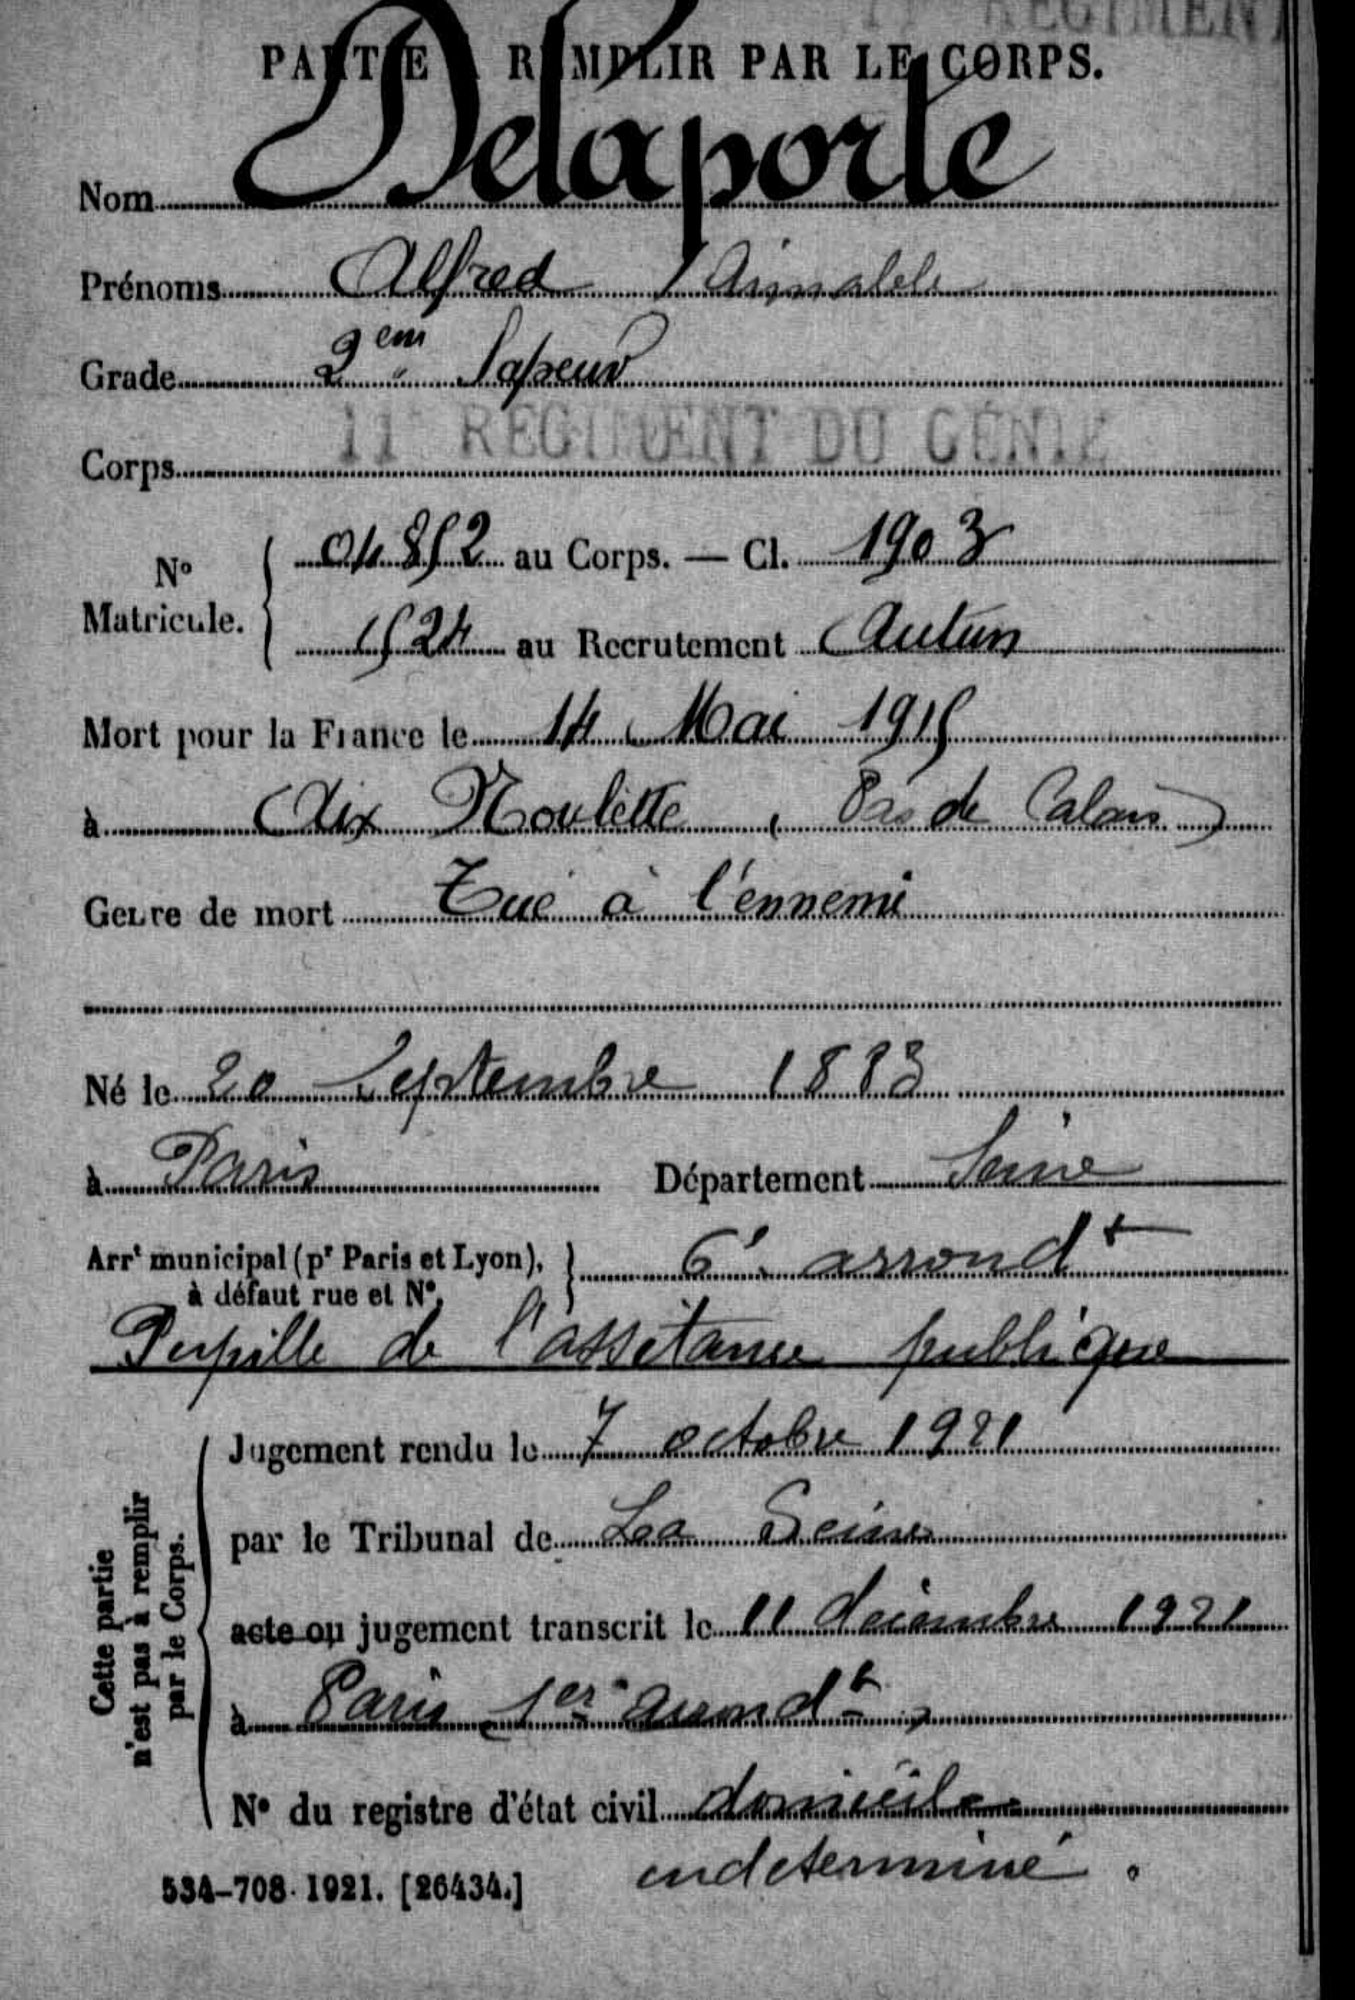 11e REGIMENT
PARTIE À REMPLIR PAR LE CORPS.
Nom Delaporte
Prénoms Alfred Aimable
Grade 2em Sapeur
Corps 11e REGIMENT DU GÉNIE
No Matricule. { 04852 au Corps. — Cl. 1903
1524 au Recrutement Autun
Mort pour la France le 14 Mai 1915
à Aix Noulette (Pas de Calais)
Genre de mort Tué à l'ennemi
Né le 20 Septembre 1883
à Paris Département Seine
Arrt municipal (pr Paris et Lyon), } 6e arrondt
à défaut rue et No.
Pupille de l'assitance publique
Cette partie
n'est pas à remplir
par le Corps.
Jugement rendu le 7 octobre 1921
par le Tribunal de La Seine
acte ou jugement transcrit le 11 décembre 1921
à Paris 1er arrondt
No du registre d'état civil domicile
indeterminé.
534-708. 1921. [26434.]